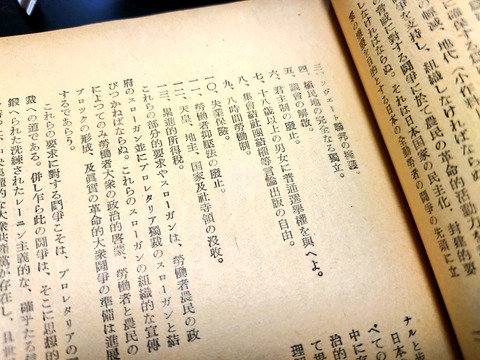 の削減、地代(小作料
を支持し、組織しなければなら
に對する鬪爭に於て農民の革命的活動力
しなければならぬ。それは日本國家の民主化、封建的
を目的とする日本の全勤勞者の鬪爭の先頭に立
三、ソヴェート聯邦の擁護
四、植民地の完全なる獨立。
五、議會の解散。
六、君主制の廢止。
七、十八歳以上の男女に普通選擧權を與へよ。
八、集會結社團結權等言論出版の自由。
九、八時間勞働制。
一〇、失業保險。
一一、勞働者抑壓法の廢止。
一二、天皇、地主、國家及社寺領の沒收。
一三、累進的所得税。
これらの部分的要求やスローガンは、勞働者農民の政
府のスローガン並にプロレタリア獨裁のスローガンと結
びつかねばならぬ。これらのスローガンの組織的な宣傳
によつてのみ勞働者大衆の政治的啓蒙、勞働者と農民の
ブロックの形成、及眞實の革命的大衆鬪爭の準備は進展
するであらう。
これらの要求に對する鬪爭こそは、プロレタリアの
裁への道である。併し乍ら此の鬪爭は、そこに思想的
鍛へられた洗練されたレーニン主義的な、確乎たる
な大衆共産黨が存在し、且
ナルと
日本
べての
中に
治的
て
理解